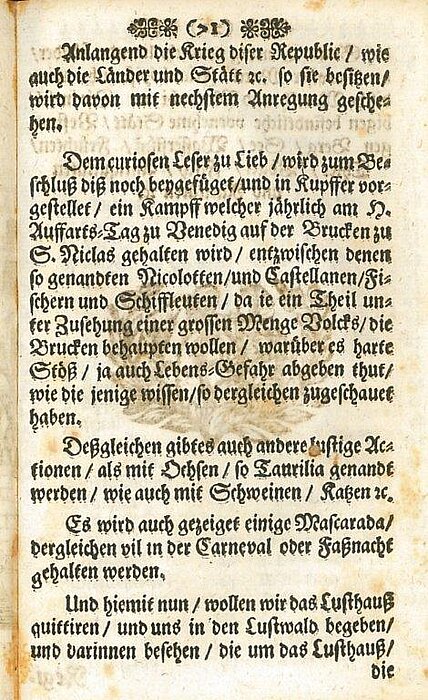 (71)
Anlangend die Krieg diser Republic / wie
auch die Länder und Stätt ꝛc. so sie besitzen /
wird davon mit nechstem Anregung gesche-
hen.
Dem curiosen Leser zu Lieb / wird zum Be-
schluß diß noch beygefüget / und in Kupffer vor-
gestellet / ein Kampff welcher jährlich am H.
Auffarts-Tag zu Venedig auf der Brucken zu
S. Niclas gehalten wird / entzwischen denen
so genandten Nicolotten / und Castellanen / Fi-
schern und Schiffleuten / da ie ein Theil un-
ter Zusehung einer grossen Menge Volcks / die
Brucken behaupten wollen / warüber es harte
Stöß / ja auch Lebens-Gefahr abgeben thut /
wie die jenige wissen / so dergleichen zugeschauet
haben.
Deßgleichen gibt es auch andere lustige Ac-
tionen / als mit Ochsen / so Taurilia genandt
werden / wie auch mit Schweinen / Katzen ꝛc.
Es wird auch gezeiget einige Mascarada /
dergleichen vil in der Carneval oder Faßnacht
gehalten werden.
Und hiemit nun / wollen wir das Lusthauß
quittiren / und uns in den Lustwald begeben /
und darinnen besehen / die um das Lusthauß /
die